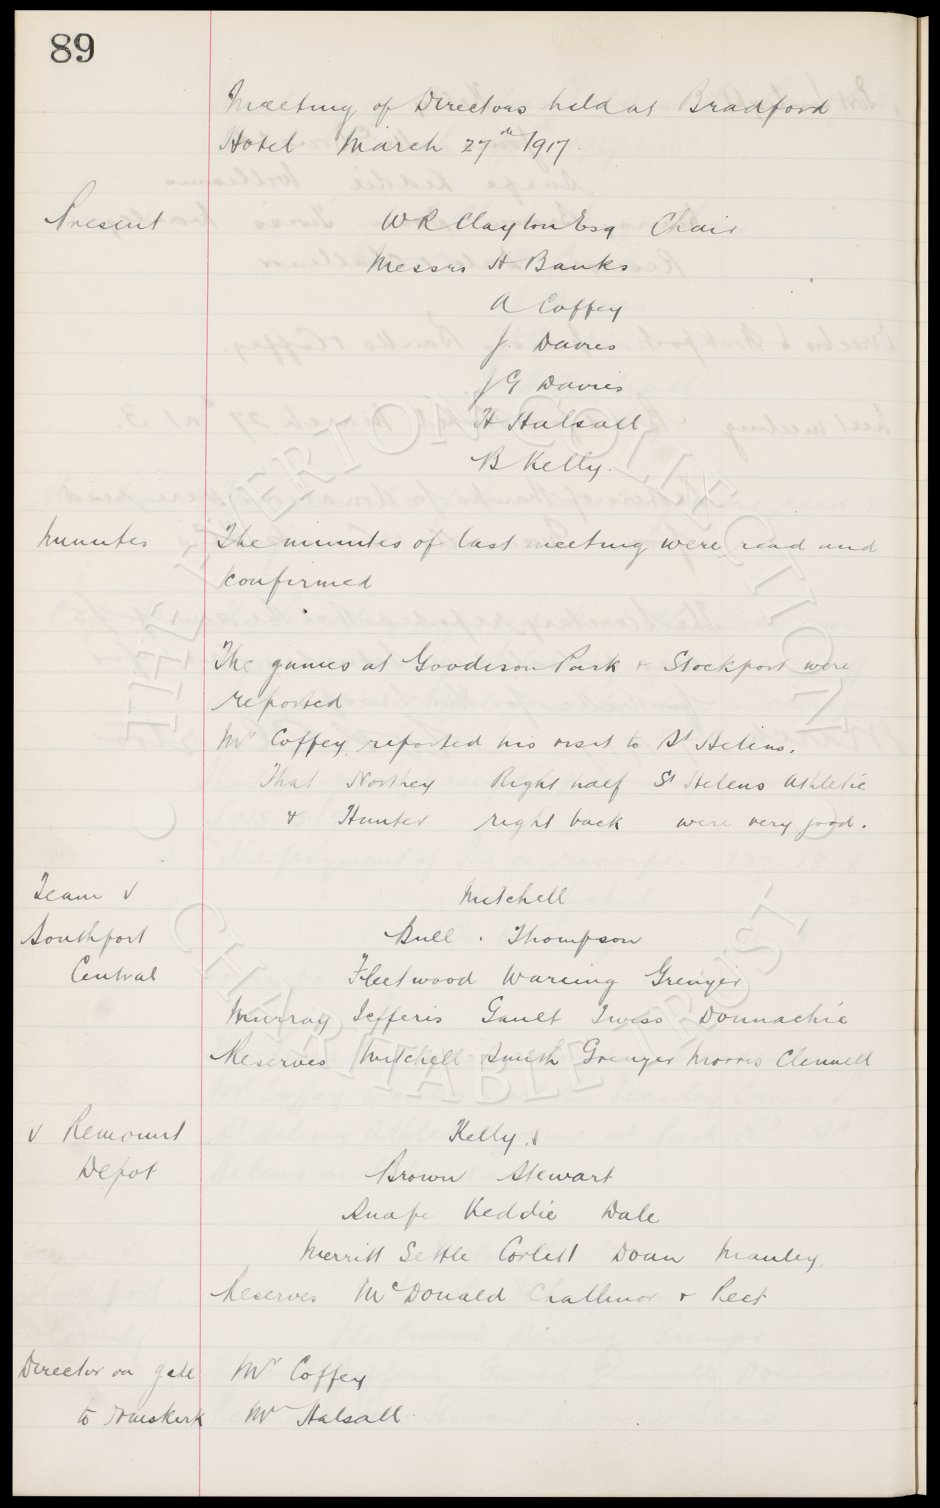 89
Meeting of Directors held at Bradford
Hotel March 27th 1917.
Present W R Clayton Esq Chair
Messrs H Banks
A Coffey
J. Davies
J G Davies
H Halsall
B Kelly.
Minutes The minutes of last meeting were read and
confirmed
The games at Goodison Park & Stockport were
reported
Mr Coffey reported his visit to St Helens.
That Northey Right half St Helens Athletic
& Hunter right back were very good.
Team v Mitchell
Southport Bull . Thompson
Central Fleetwood Wareing Grenyer
Murray Jefferis Gault Twiss Donnachie
Reserves Mitchell Smith Grenyer Morris Clennell
v Remount Kelly. J
Depot Brown Stewart
Snape Keddie Dale
Merritt Settle Corlett Doan Manley.
Reserves McDonald Challinor & Rees
Director on gate Mr Coffey
to Ormskirk Mr Halsall.
THE EVERTON COLLECTION
CHARITABLE TRUST